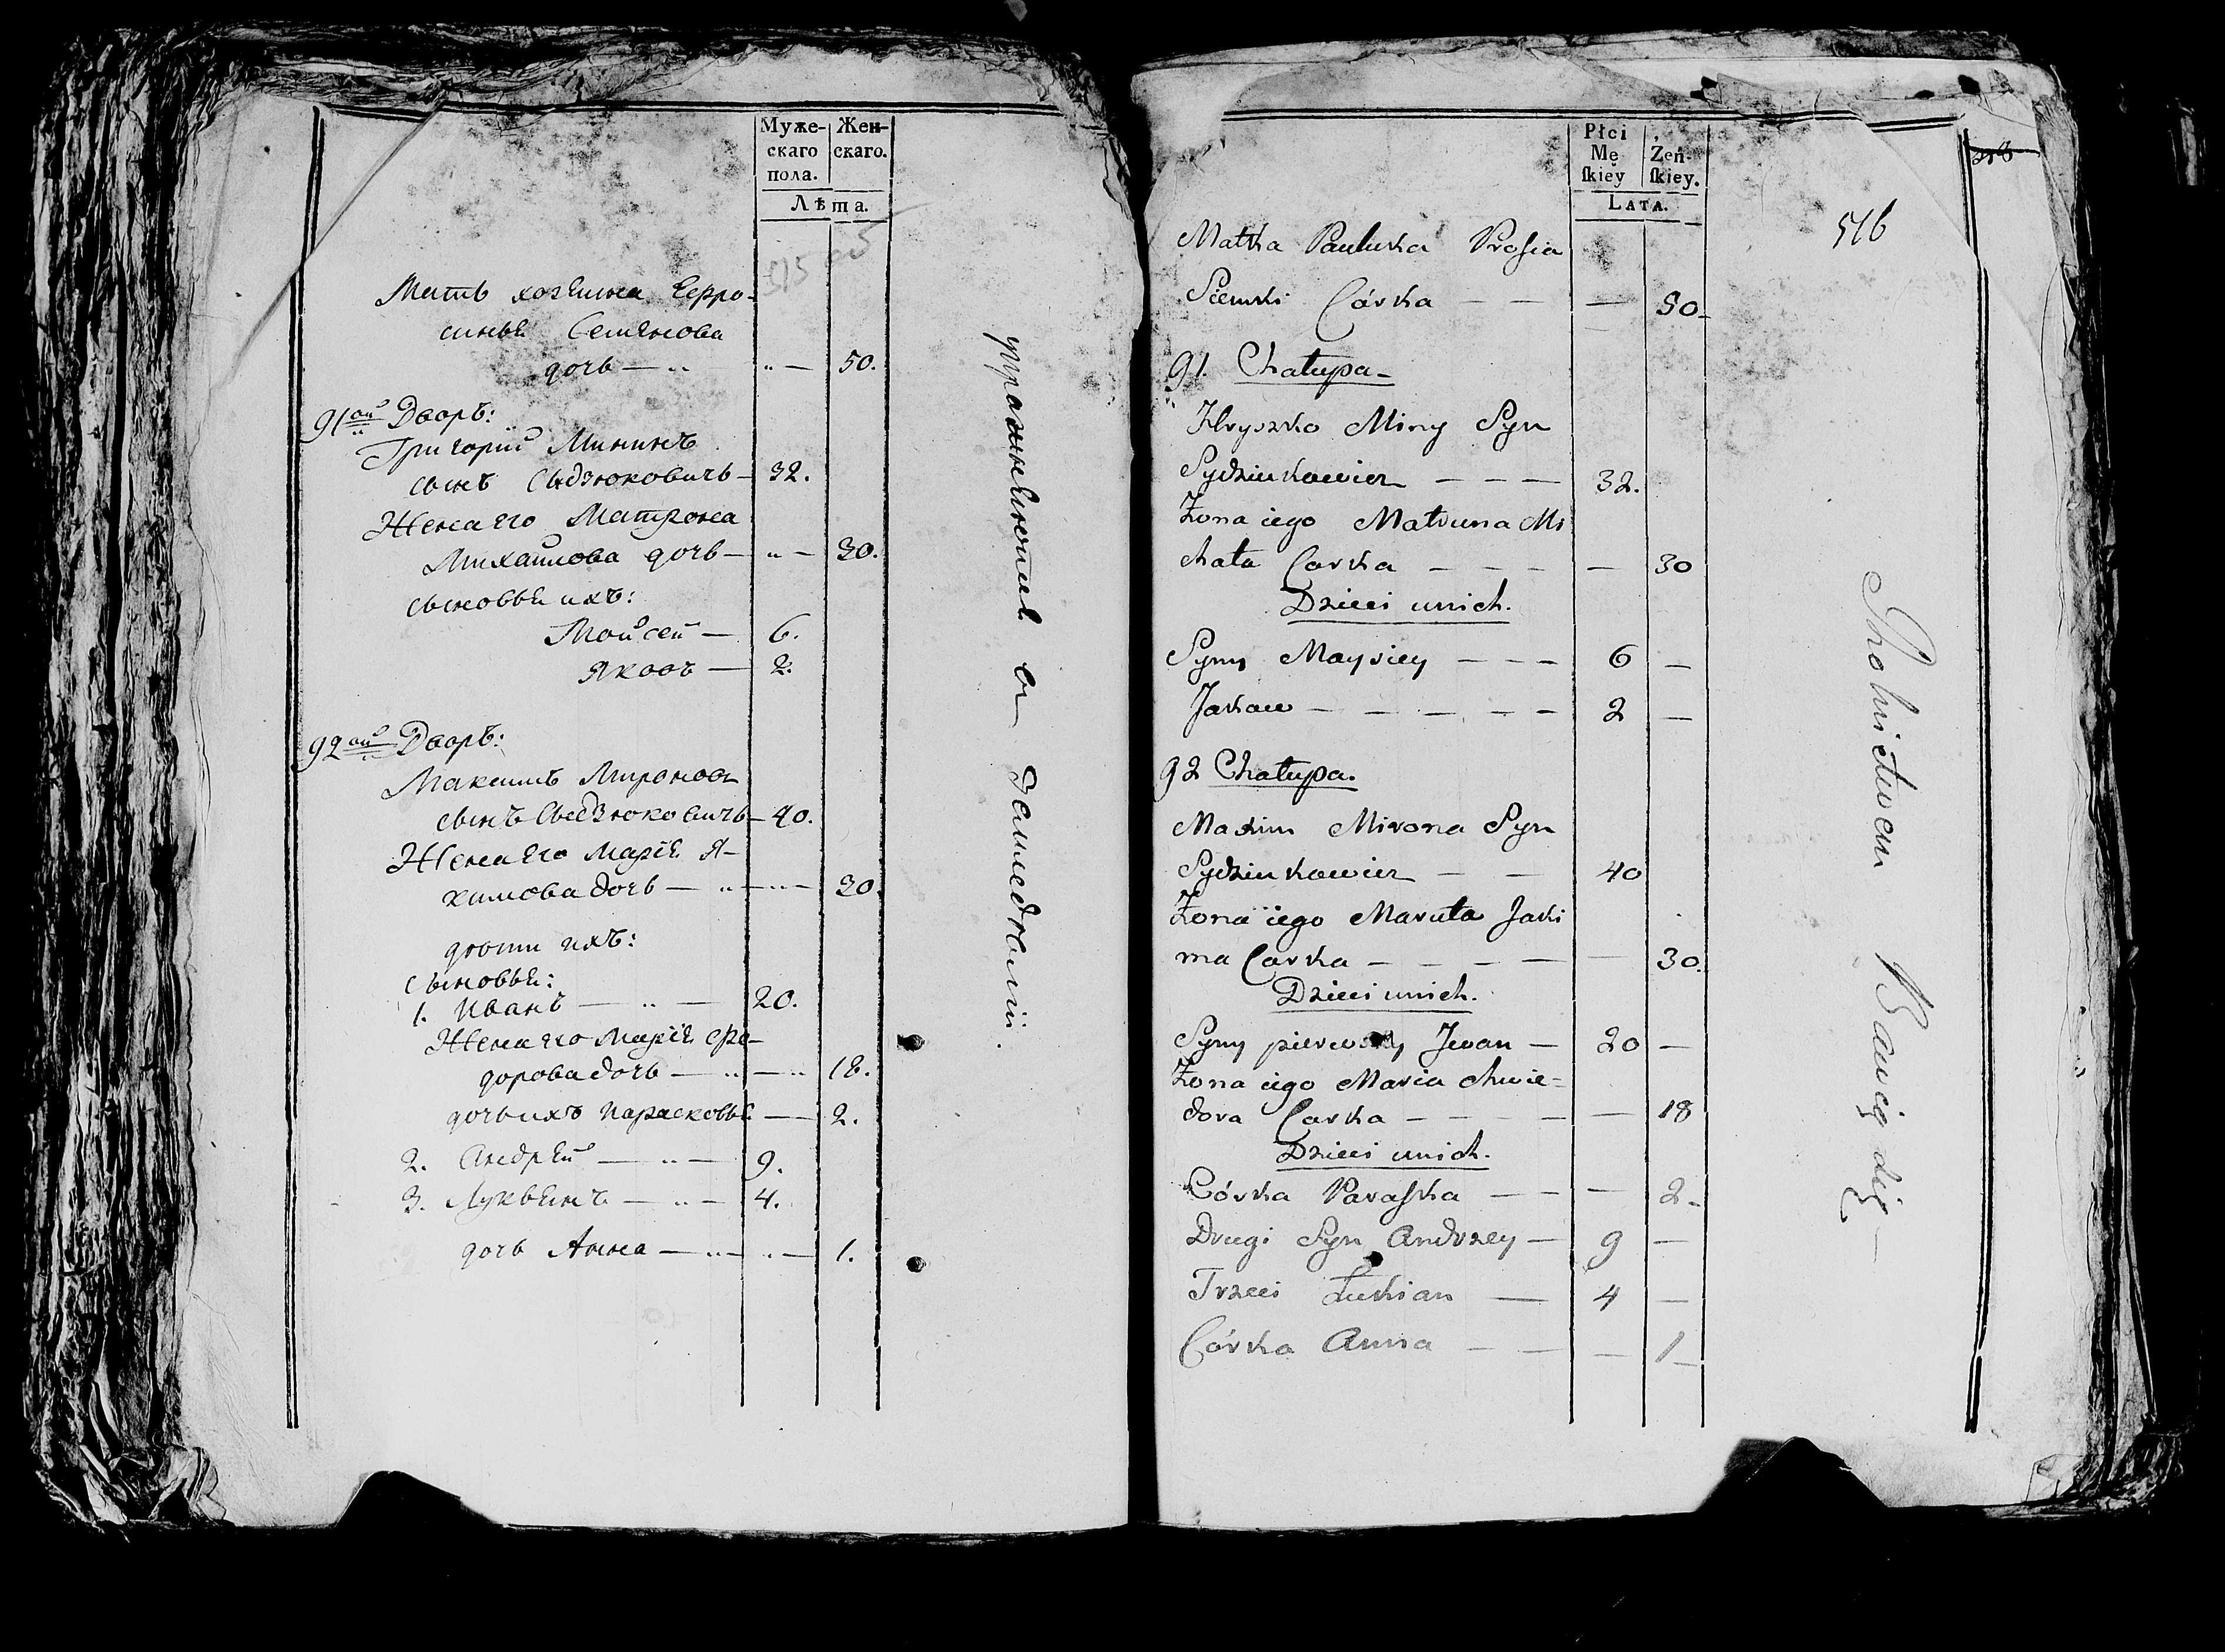 Муже-
скаго
пола.
Жен-
скаго.
Лѣта.
515
Мать хозяина Ефро-
синья Семенова
дочь — " — " — 50.
91ой Дворъ:
Григорій Мининъ
сынъ Сыдзюковичъ — 32.
Жена его Матрона
Михайлова дочь — " — 30.
сыновья ихъ:
Мойсей — 6.
Яковъ — 2.
92ой Дворъ:
Максимъ Миронов
сынъ Сыдзюковичъ — 40.
Жена его Марія Я-
кимова дочь — " — " — 30.
дѣти ихъ:
сыновья:
1. Иванъ — " — 20.
Жена его Марія Фе-
дорова дочь — " — " 18.
дочь ихъ Парасковья — 2.
2. Андрей — " — 9.
3. Лукьянъ — " — 4.
дочь Анна — " — " — 1.
упражняются в земледѣліи.
Płci
Mę
ſkiey
Żeń-
ſkiey.
LATA.
516
Matka Pauluka Prosia
Siemki Córka — — — 50
91. Chałupa
Hryszko Miny Syn
Sydziukowicz — — — 32.
Żona iego Matruna Mi
chała Corka — — — — 30
Dzieci unich.
Syny Maysiey — — — 6 —
Jakow — — — — — 2 —
92 Chałupa.
Maxim Mirona Syn
Sydziukowicz — — 40
Żona iego Maruta Jaki
ma Corka — — — — — 30.
Dzieci unich.
Syny pierwszy Jwan — 20 —
Żona iego Maria Chwie-
dora Corka — — — — — 18
Dzieci unich.
Córka Paraſka — — — 2
Drugi Syn Andrzey — 9 —
Trzeci Łukian — 4 —
Córka Anna — — — 1
Rolnictwem Bawią się —